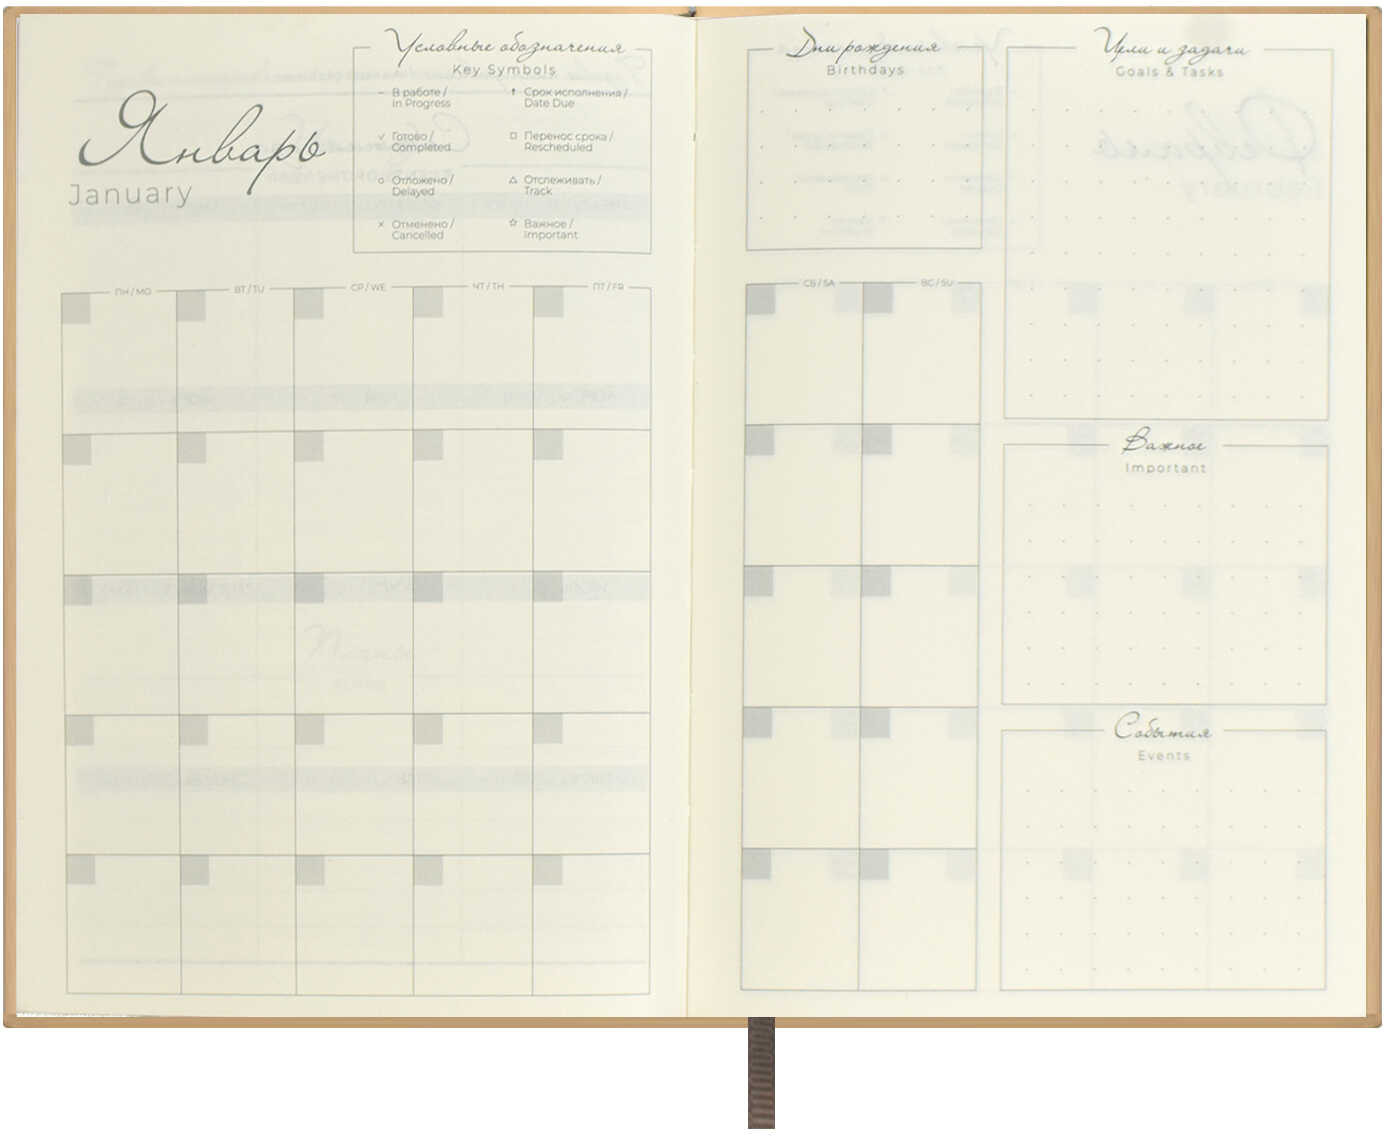 Январь
January
Условные обозначения
Key Symbols
– В работе /
In Progress
✓ Готово /
Completed
○ Отложено /
Delayed
× Отменено /
Cancelled
↑ Срок исполнения /
Date Due
□ Перенос срока /
Rescheduled
△ Отслеживать /
Track
☆ Важное /
Important
ПН / MO
ВТ / TU
СР / WE
ЧТ / TH
ПТ / FR
Дни рождения
Birthdays
СБ / SA
ВС / SU
Цели и задачи
Goals & Tasks
Важное
Important
События
Events